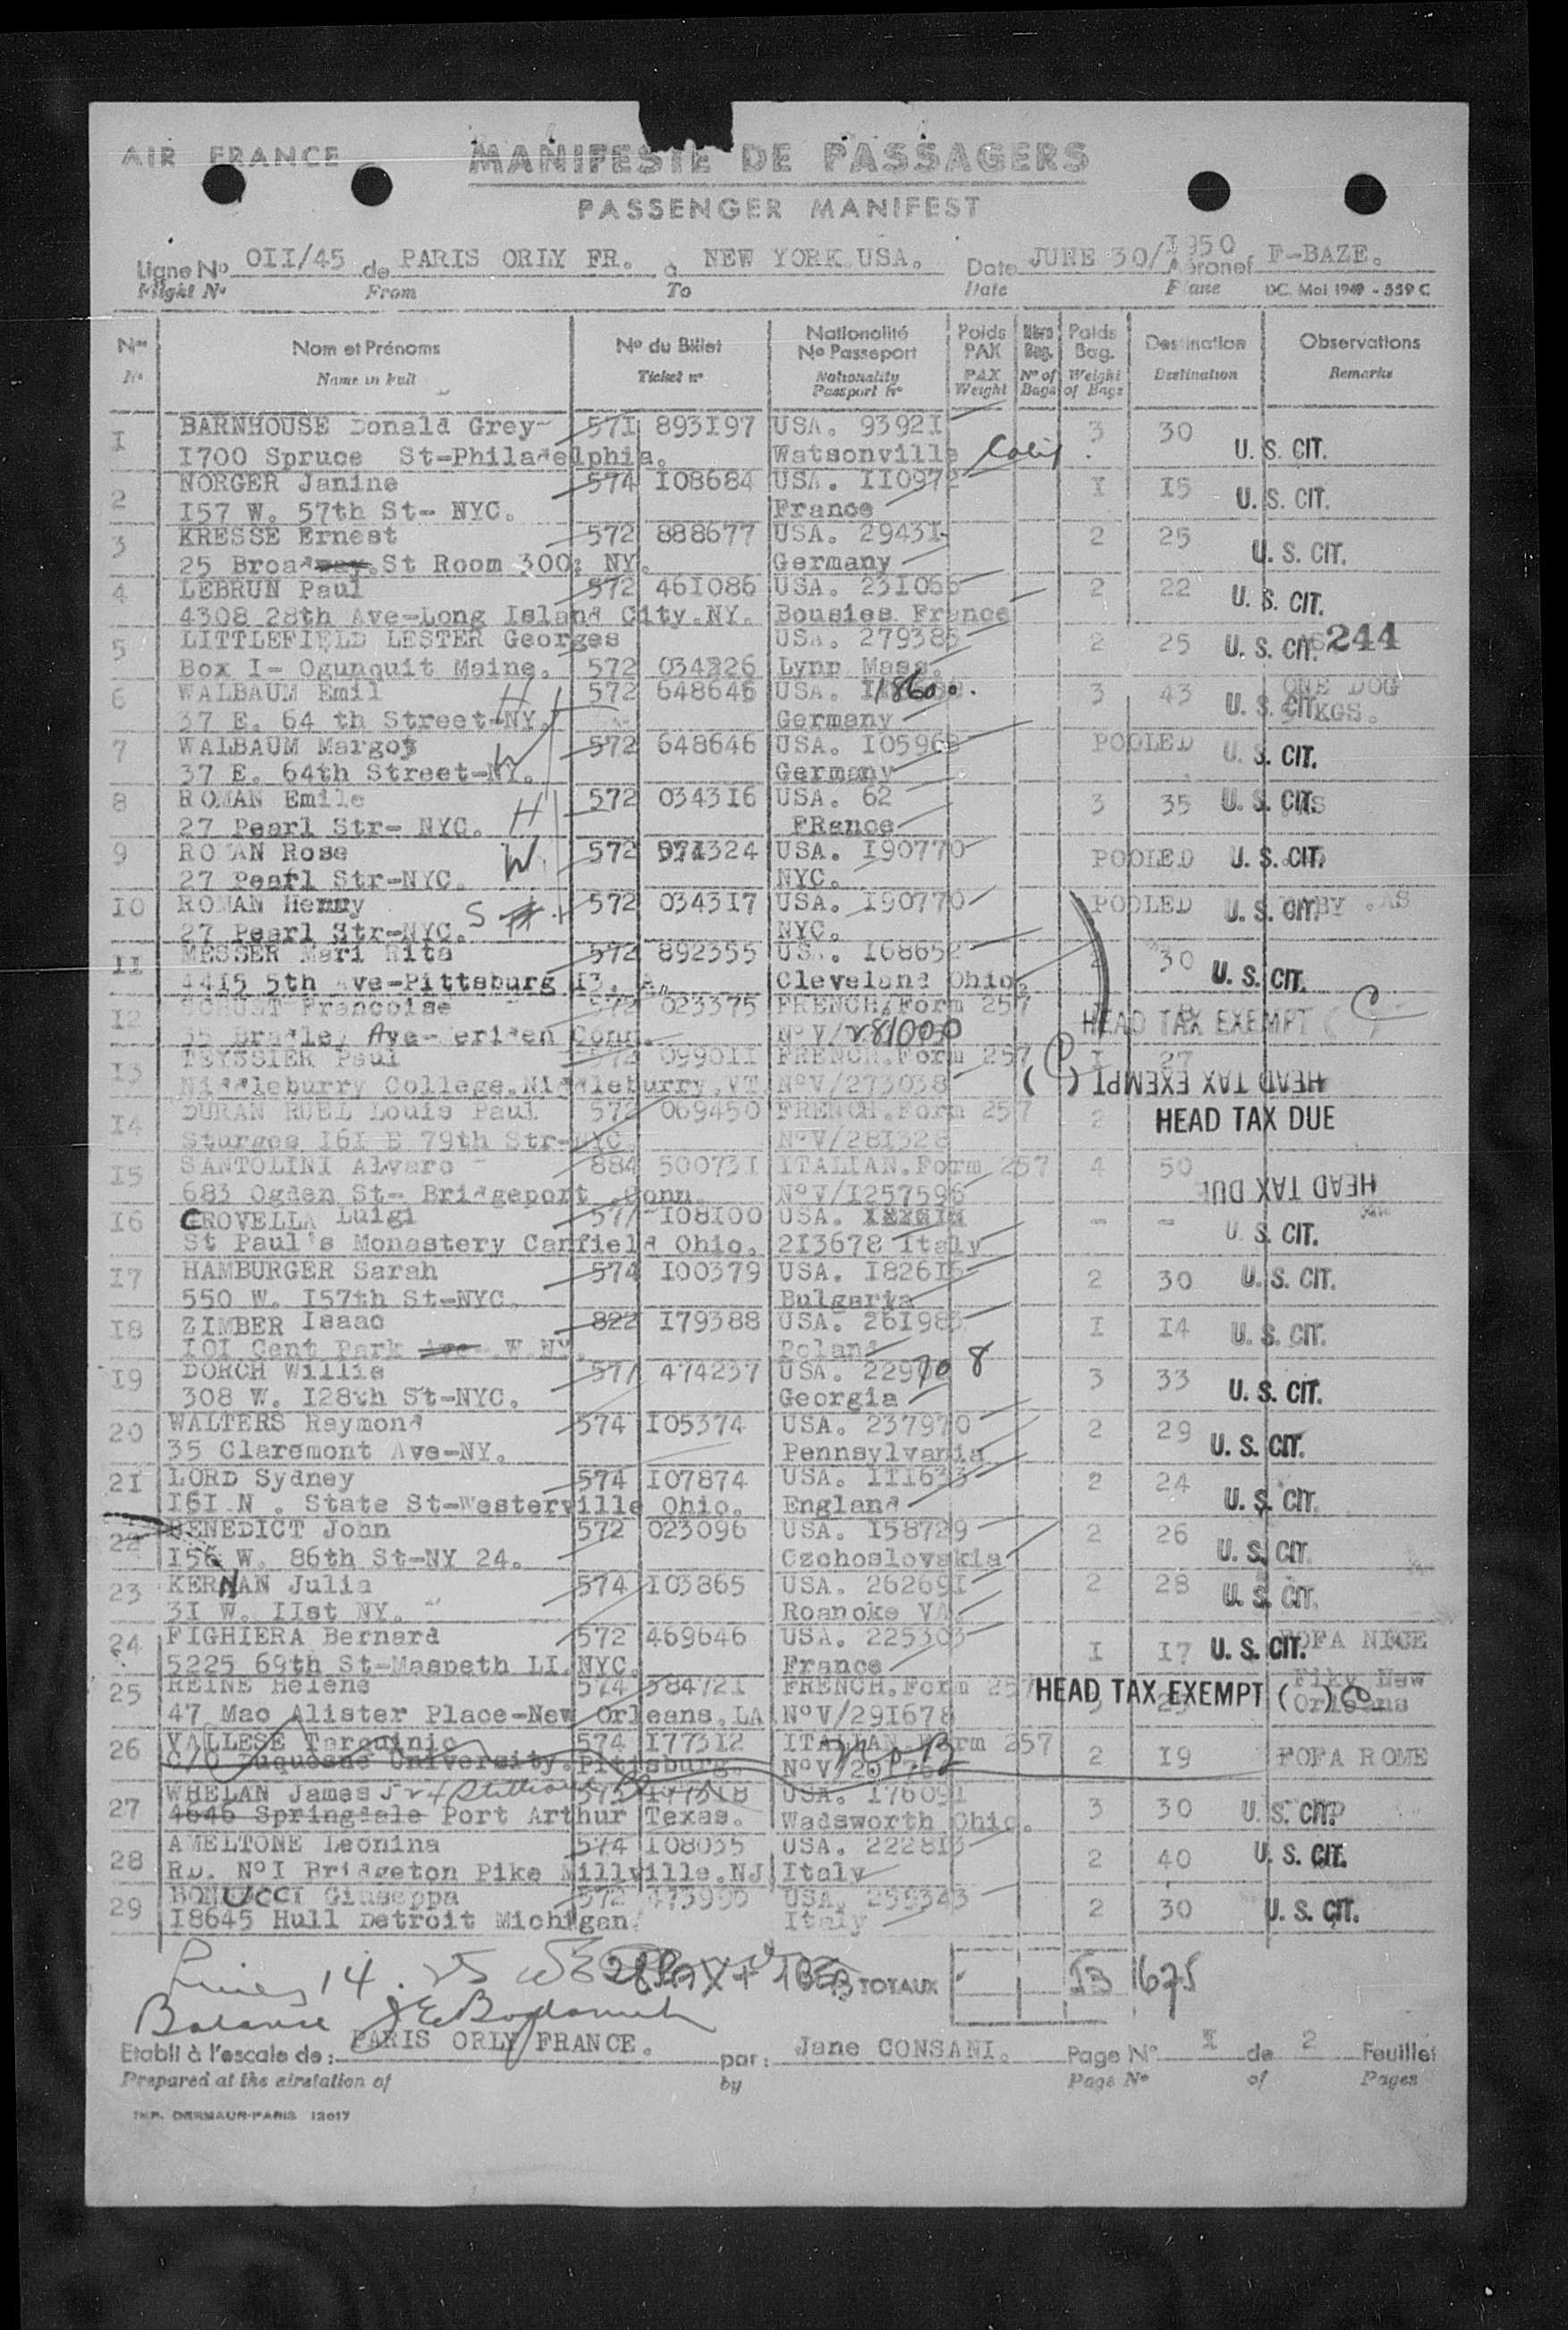 AIR FRANCE
MANIFESTE DE PASSAGERS
PASSENGER MANIFEST
Ligne No OII/45 de PARIS ORLY FR. à NEW YORK USA. Date JUNE 30/1950 Aéronef F-BAZE.
Flight No From To Date Plane DC. Mai 1949 - 559 C
Nos Nom et Prénoms No du Billet Nationalité No Passeport Poids PAX Nbre Bag. Poids Bag. Destination Observations
No Name in Full Ticket no Nationality Passport No PAX Weight No of Bags Weight of Bags Destination Remarks
I BARNHOUSE Donald Grey- 571 893I97 USA. 9392I 3 30 U. S. CIT.
I700 Spruce St-Philadelphia. Watsonville Calif
2 NORGER Janine 574 I08684 USA. II0972 I I5 U. S. CIT.
I57 W. 57th St- NYC. France
3 KRESSE Ernest 572 888677 USA. 2943I 2 25 U. S. CIT.
25 Broadway.St Room 300; NY. Germany
4 LEBRUN Paul 572 46I086 USA. 23I066 2 22 U. S. CIT.
4308 28th Ave-Long Island City.NY. Bousies France
5 LITTLEFIELD LESTER Georges USA. 279385 2 25 U. S. CIT. 244
Box I- Ogunquit Maine. 572 034226 Lynn Mass.
6 WALBAUM Emil H 572 648646 USA. 18600. 3 43 U. S. CIT. ONE DOG
37 E. 64 th Street-NY. Germany KGS.
7 WALBAUM Margot W 572 648646 USA. I05968 POOLED U. S. CIT.
37 E. 64th Street-NY. Germany
8 ROMAN Emile H 572 0343I6 USA. 62 3 35 U. S. CIT.
27 Pearl Str- NYC. FRance
9 ROMAN Rose W. 572 USA. I90770 POOLED U. S. CIT.
27 Pearl Str-NYC. NYC.
I0 ROMAN Henry S 572 0343I7 USA. I90770 POOLED U. S. CIT.
27 Pearl Str-NYC. NYC.
II MESSER Mari Rita 572 892355 USA. I68652 30 U. S. CIT.
44I5 5th Ave-Pittsburg I3. Cleveland Ohio.
I2 Francoise 572 023375 FRENCH.Form 257 I HEAD TAX EXEMPT ( C )
35 Bradley Ave- Meriden Conn. NoV/281000
I3 TEYSSIER Paul 572 0990II FRENCH.Form 257 I 27 HEAD TAX EXEMPT ( )
Middleburry College.Niddleburry.VT. NoV/273038
I4 DURAN RUEL Louis Paul 572 069450 FRENCH.Form 257 2 HEAD TAX DUE
Sturges I6I E 79th Str-NYC. NoV/28I328
I5 SANTOLINI Alvaro 884 50073I ITALIAN.Form 257 4 50 HEAD TAX DUE
683 Ogden St- Bridgeport .Conn. NoV/I257596
I6 CROVELLA Luigi 571 I08I00 USA. - - U. S. CIT.
St Paul's Monastery Canfield Ohio. 2I3678 Italy
I7 HAMBURGER Sarah 574 I00379 USA. I826I6 2 30 U. S. CIT.
550 W. I57th St-NYC. Bulgaria
I8 ZIMBER Isaac 822 I79388 USA. 26I983 I I4 U. S. CIT.
I0I Cent Park Ave .W.NY. Poland
I9 DORCH Willie 571 474237 USA. 229708 3 33 U. S. CIT.
308 W. I28th St-NYC. Georgia
20 WALTERS Raymond 574 I05374 USA. 237970 2 29 U. S. CIT.
35 Claremont Ave-NY. Pennsylvania
2I LORD Sydney 574 I07874 USA. III633 2 24 U. S. CIT.
I6I N . State St-Westerville Ohio. England
22 BENEDICT John 572 023096 USA. I58729 2 26 U. S. CIT.
I56 W. 86th St-NY 24. Czchoslovakia
23 KERNAN Julia 574 I03865 USA. 26269I 2 28 U. S. CIT.
3I W. IIst NY. Roanoke VA
24 FIGHIERA Bernard 572 469646 USA. 225303 I I7 U. S. CIT. FOFA NICE
5225 69th St-Maspeth LI.NYC. France
25 REINE Helene 574 58472I FRENCH.Form 257 HEAD TAX EXEMPT ( ) New
47 Mac Alister Place-New Orleans.LA NoV/29I678 Orleans
26 VALLESE Tarquinio 574 I773I2 ITALIAN.Form 257 2 I9 FOFA ROME
C/O Duquesne University.Pittsburg.
27 WHELAN James J USA. I7609I 3 30 U. S. CIT.
4646 Springdale Port Arthur Texas. Wadsworth Ohio.
28 AMELTONE Leonina 574 I08035 USA. 2228I3 2 40 U. S. CIT.
RD. NoI Bridgeton Pike Millville.NJ Italy
29 BONUCCI Giuseppa 572 USA. 255343 2 30 U. S. CIT.
I8645 Hull Detroit Michigan. Italy
Lines 14. 25 TOTAUX 53 1675
Balance
Etabli à l'escale de: PARIS ORLY FRANCE. par: Jane CONSANI. Page No I de 2 Feuillet
Prepared at the airstation of by Page No of Pages
IMP. DERMAUR-PARIS 12617